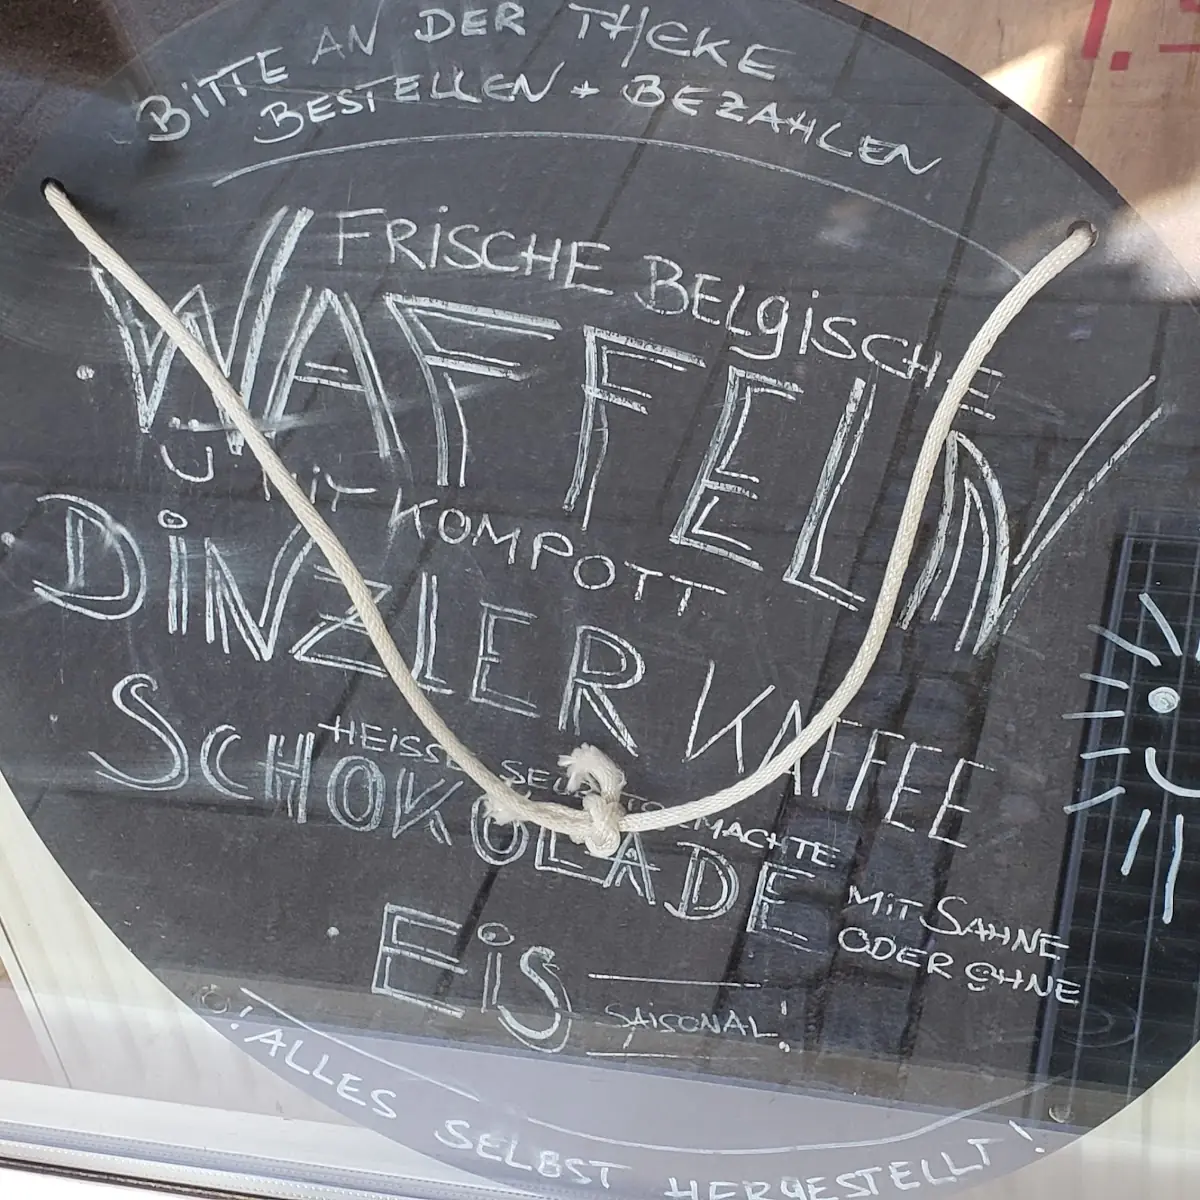 BITTE AN DER THEKE
BESTELLEN + BEZAHLEN
FRISCHE BELGISCHE
WAFFELN
MIT KOMPOTT
DINZLER KAFFEE
HEISSE
SCHOKOLADE
MIT SAHNE
ODER OHNE
EIS
SAISONAL!
! ALLES SELBST HERGESTELLT!